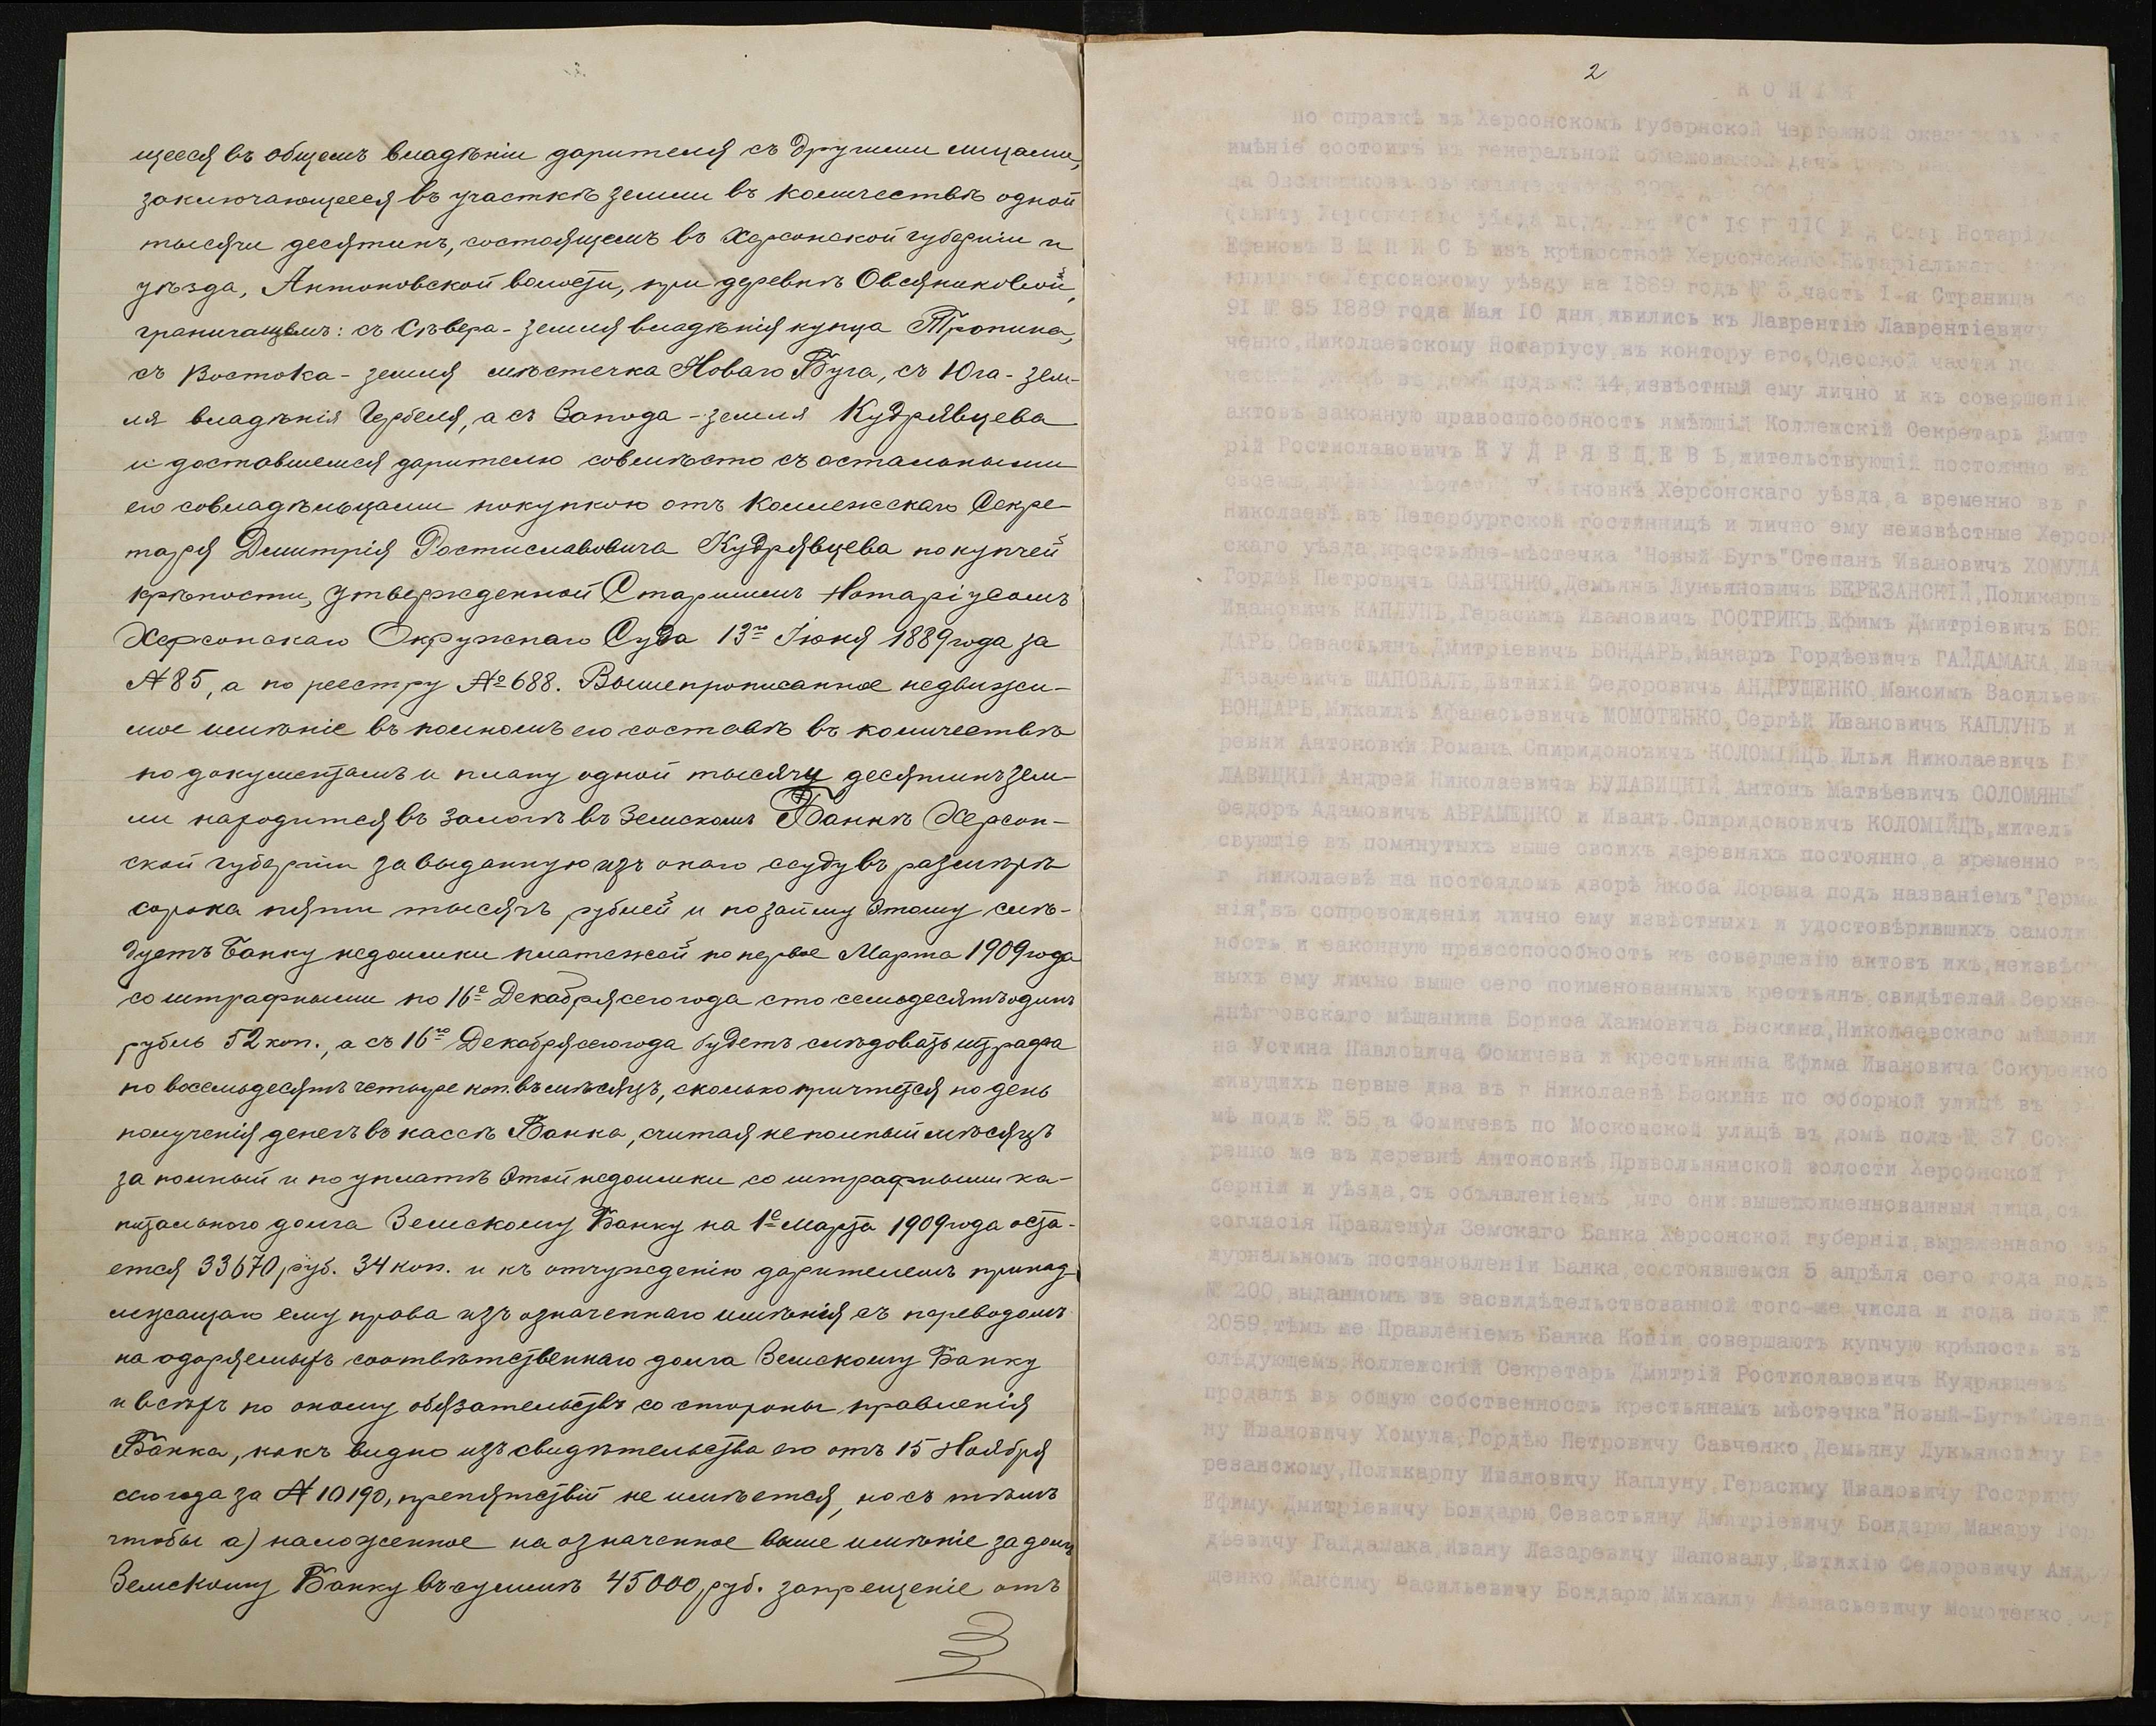 щееся въ общемъ владѣніи дарителя съ другими лицами,
заключающееся въ участкѣ земли въ количествѣ одной
тысячи десятинъ, состоящемъ въ Херсонской губерніи и
уѣзда, Антоновской волости, при деревнѣ Овсяниковой,
граничащемъ: съ Сѣвера - земля владѣнія купца Тропина,
съ Востока - земля мѣстечка Новаго Буга, съ Юга - зем-
ля владѣнія Гербеля, а съ Запада - земля Кудрявцева
и доставшемся дарителю совмѣсто съ остальными
его совладѣльцами покупкою отъ Коллежскаго Секре-
таря Димитрія Ростиславовича Кудрявцева по купчей
крѣпости, утвержденной Старшимъ Нотаріусомъ
Херсонскаго Окружнаго Суда 13го Іюня 1889 года за
№ 85, а по реестру № 688. Вышепрописанное недвижи-
мое имѣніе въ полномъ его составѣ въ количествѣ
по документамъ и плану одной тысячи десятинъ зем-
ли находится въ залогѣ въ Земскомъ Банкѣ Херсон-
ской губерніи за выданную изъ онаго ссуду въ размѣрѣ
сорока пяти тысячъ рублей и по займу этому слѣ-
дуетъ Банку недоимки платежей по первое Марта 1909 года
со штрафными по 16е Декабря сего года сто семьдесятъ одинъ
рубль 52 коп., а съ 16го Декабря сего года будетъ слѣдовать штрафа
по восемьдесятъ четыре коп. въ мѣсяцъ, сколько причтется по день
полученія денегъ въ кассѣ Банка, считая неполный мѣсяцъ
за полный и по уплатѣ этой недоимки со штрафными ка-
питальнаго долга Земскому Банку на 1е Марта 1909 года оста-
ется 33670 руб. 34 коп. и къ отчужденію дарителемъ принад-
лежащаго ему права изъ означеннаго имѣнія съ переводомъ
на одаряемыхъ соотвѣтственнаго долга Земскому Банку
и всѣхъ по оному обязательствъ со стороны правленія
Банка, какъ видно изъ свидѣтельства его отъ 15 Ноября
сего года за № 10190, препятствій не имѣется, но съ тѣмъ
чтобы а) наложенное на означенное выше имѣніе за долгъ
Земскому Банку въ суммѣ 45000 руб. запрещеніе отъ
2
КОПІЯ
По справкѣ въ Херсонскомъ Губернской Чертежной
имѣніе состоитъ въ генеральной
Ефановъ ВЫПИСЬ изъ крѣпостной Херсонскаго Нотаріальна
книги по Херсонскому уѣзду на 1889 годъ № 3 часть I-я Страница
91 № 85 1889 года Мая 10 дня, явились къ Лаврентію Лаврентіевичу
ченко, Николаевскому Нотаріусу, въ контору его, Одесской части
44, извѣстный ему лично и къ совершенію
актовъ законную правоспособность имѣющій Коллежскій Секретарь Дмит
рій Ростиславовичъ КУДРЯВЦЕВЪ, жительствующій постоянно въ
своемъ имѣніи Херсонскаго уѣзда, а временно въ г
Николаевѣ въ Петербургской гостинницѣ и лично ему неизвѣстные Херсон
скаго уѣзда, крестьяне мѣстечка "Новый-Бугъ" Степанъ Ивановичъ ХОМУЛА
Гордѣй Петровичъ САВЧЕНКО, Демьянъ Лукьяновичъ БЕРЕЗАНСКІЙ, Поликарпъ
Ивановичъ КАПЛУНЪ, Герасимъ Ивановичъ ГОСТРИКЪ, Ефимъ Дмитріевичъ БОН
ДАРЬ, Севастьянъ Дмитріевичъ БОНДАРЬ, Макаръ Гордѣевичъ ГАЙДАМАКА, Ива
Лазаревичъ ШАПОВАЛЪ, Евтихій Федоровичъ АНДРУЩЕНКО, Максимъ Васильев
БОНДАРЬ, Михаилъ Афанасьевичъ МОМОТЕНКО, Сергѣй Ивановичъ КАПЛУНЪ и
ревни Антоновки Романъ Спиридоновичъ КОЛОМІЙЦЪ, Илья Николаевичъ БУ
ЛАВИЦКІЙ, Андрей Николаевичъ БУЛАВИЦКІЙ, Антонъ Матвѣевичъ СОЛОМЯНЫ
Федоръ Адамовичъ АВРАМЕНКО и Иванъ Спиридоновичъ КОЛОМІЙЦЪ, житель
свующіе въ помянутыхъ выше своихъ деревняхъ постоянно, а временно въ
г Николаевѣ на постояломъ дворѣ Якоба Лорана подъ названіемъ "Герма
нія", въ сопровожденіи лично ему извѣстныхъ и удостовѣрившихъ самолич
ность и законную правоспособность къ совершенію актовъ ихъ, неизвѣст
ныхъ ему лично выше сего поименованныхъ крестьянъ, свидѣтелей Верхне-
днѣпровскаго мѣщанина Бориса Хаимовича Баскина, Николаевскаго мѣщани
на Устина Павловича Фомичева и крестьянина Ефима Ивановича Сокуренко
живущихъ первые два въ г Николаевѣ Баскинъ по соборной улицѣ въ
мѣ подъ № 55, а Фомичевъ по Московской улицѣ въ домѣ подъ № 37 Соку
ренко же въ деревнѣ Антоновкѣ, Привольнянской волости Херсонской
берніи и уѣзда, съ объявленіемъ, что они вышепоименнованныя лица, съ
согласія Правленуя Земскаго Банка Херсонской губерніи, выраженнаго
журнальномъ постановленіи Банка, состоявшемся 5 апрѣля сего года подъ
№ 200, выданномъ въ засвидѣтельствованной того-же числа и года подъ №
2059, тѣмъ же Правленіемъ Банка Копіи совершаютъ купчую крѣпость въ
слѣдующемъ: Коллежскій Секретарь Дмитрій Ростиславовичъ Кудрявцевъ
продалъ въ общую собственность крестьянамъ мѣстечка "Новый-Бугъ" Степа
ну Ивановичу Хомула, Гордѣю Петровичу Савченко, Демьяну Лукьяновичу Бе
резанскому, Поликарпу Ивановичу Каплуну, Герасиму Ивановичу Гострику
Ефиму Дмитріевичу Бондарю, Севастьяну Дмитріевичу Бондарю, Макару Гор
дѣевичу Гайдамака, Ивану Лазаревичу Шаповалу, Евтихію Федоровичу Андру
щенко, Максиму Васильевичу Бондарю, Михаилу Афанасьевичу Момотенко, Сер